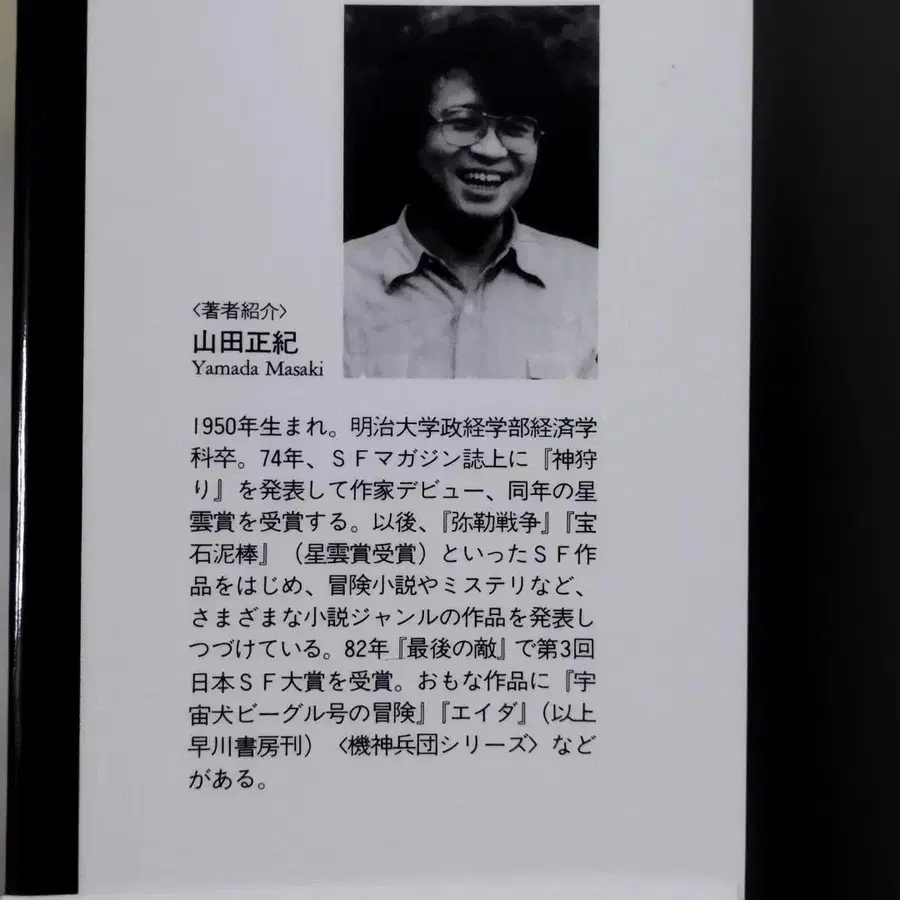 〈著者紹介〉
山田正紀
Yamada Masaki
1950年生まれ。明治大学政経学部経済学
科卒。74年、ＳＦマガジン誌上に『神狩
り』を発表して作家デビュー、同年の星
雲賞を受賞する。以後、『弥勒戦争』『宝
石泥棒』（星雲賞受賞）といったＳＦ作
品をはじめ、冒険小説やミステリなど、
さまざまな小説ジャンルの作品を発表し
つづけている。82年『最後の敵』で第3回
日本ＳＦ大賞を受賞。おもな作品に『宇
宙犬ビーグル号の冒険』『エイダ』（以上
早川書房刊）〈機神兵団シリーズ〉など
がある。